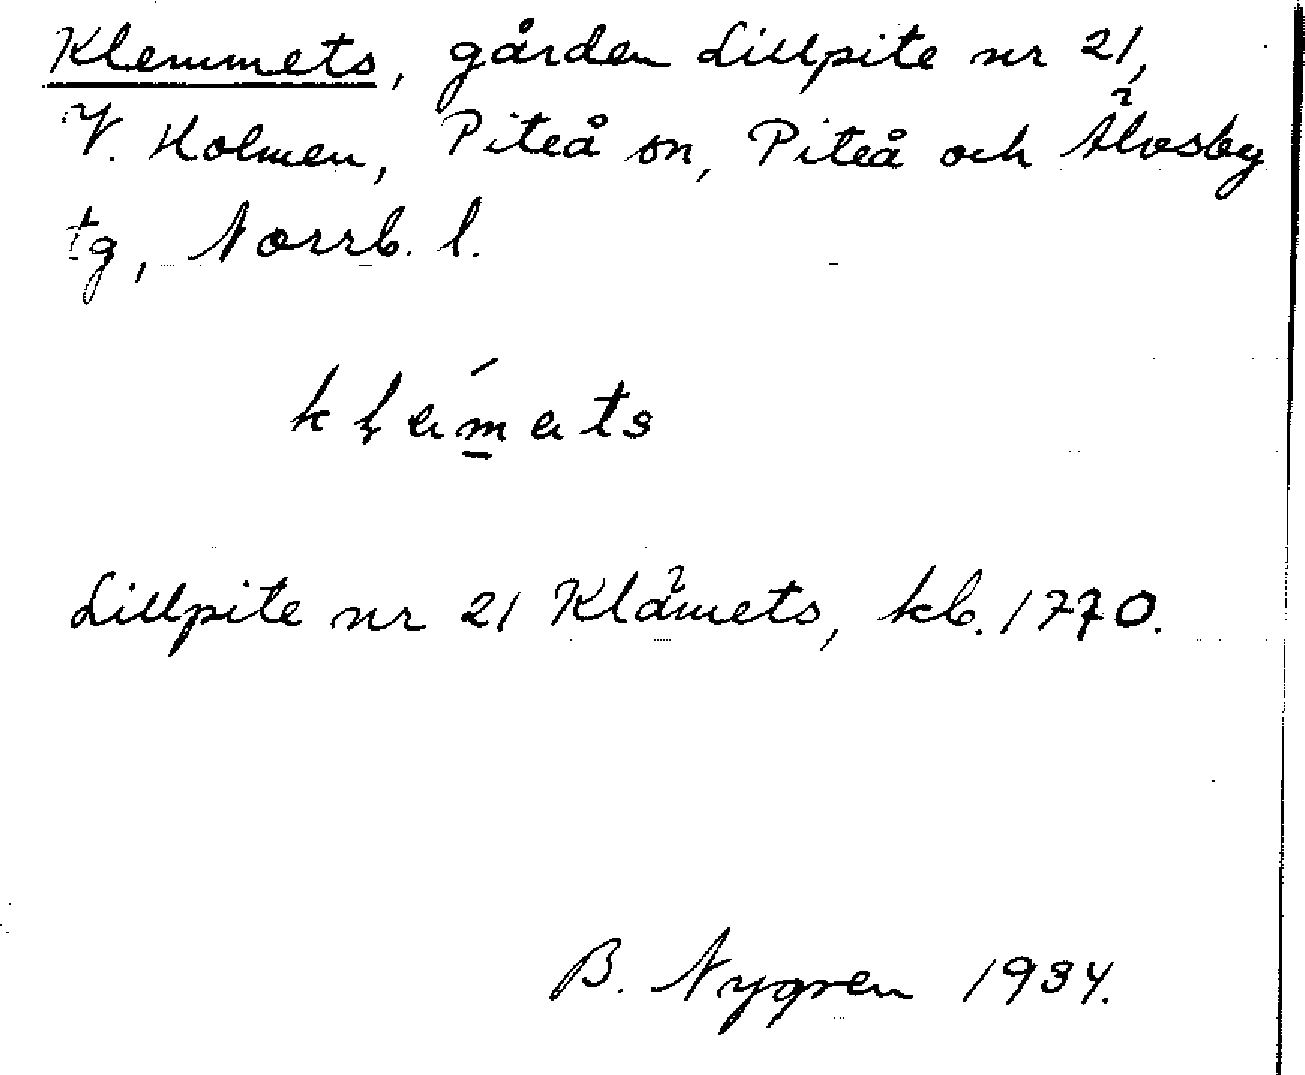 Klemmets, gården Lillpite nr 21,
V. Holmen, Piteå sn, Piteå och Älvsby
tg, Norrb. l.
Lillpite nr 21 Klämets, kb. 1770.
B. Nygren 1934.